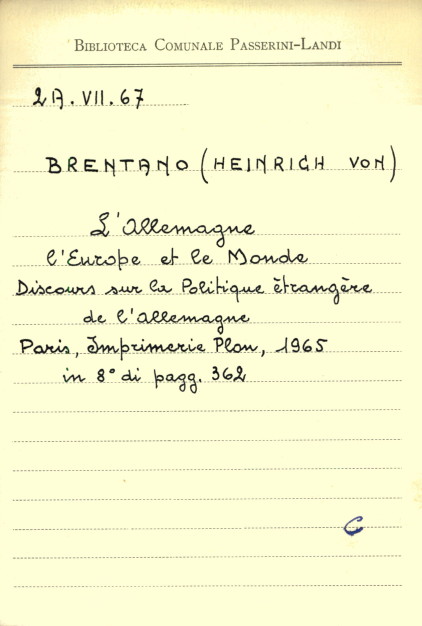 BIBLIOTECA COMUNALE PASSERINI-LANDI
2A.VII.67
BRENTANO (HEINRICH VON)
L'Allemagne
l'Europe et le Monde
Discours sur la Politique ètrangère
de l'allemagne
Paris, Imprimerie Plon, 1965
in 8° di pagg. 362
C